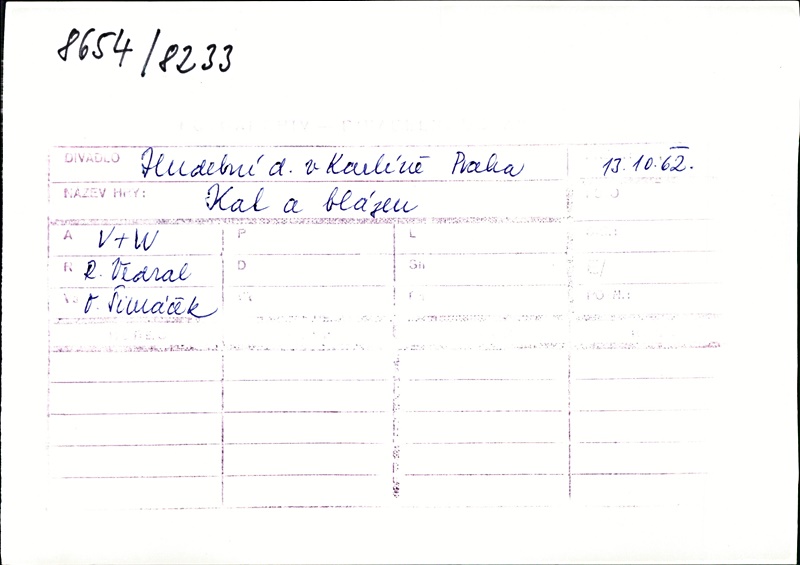 8654/8233
DIVADLO Hudební d. v Karlíně Praha 13.10.62.
NÁZEV HRY: Kat a blázen
A V+W P L
R R. Vedral D Sh
V O. Šimáček